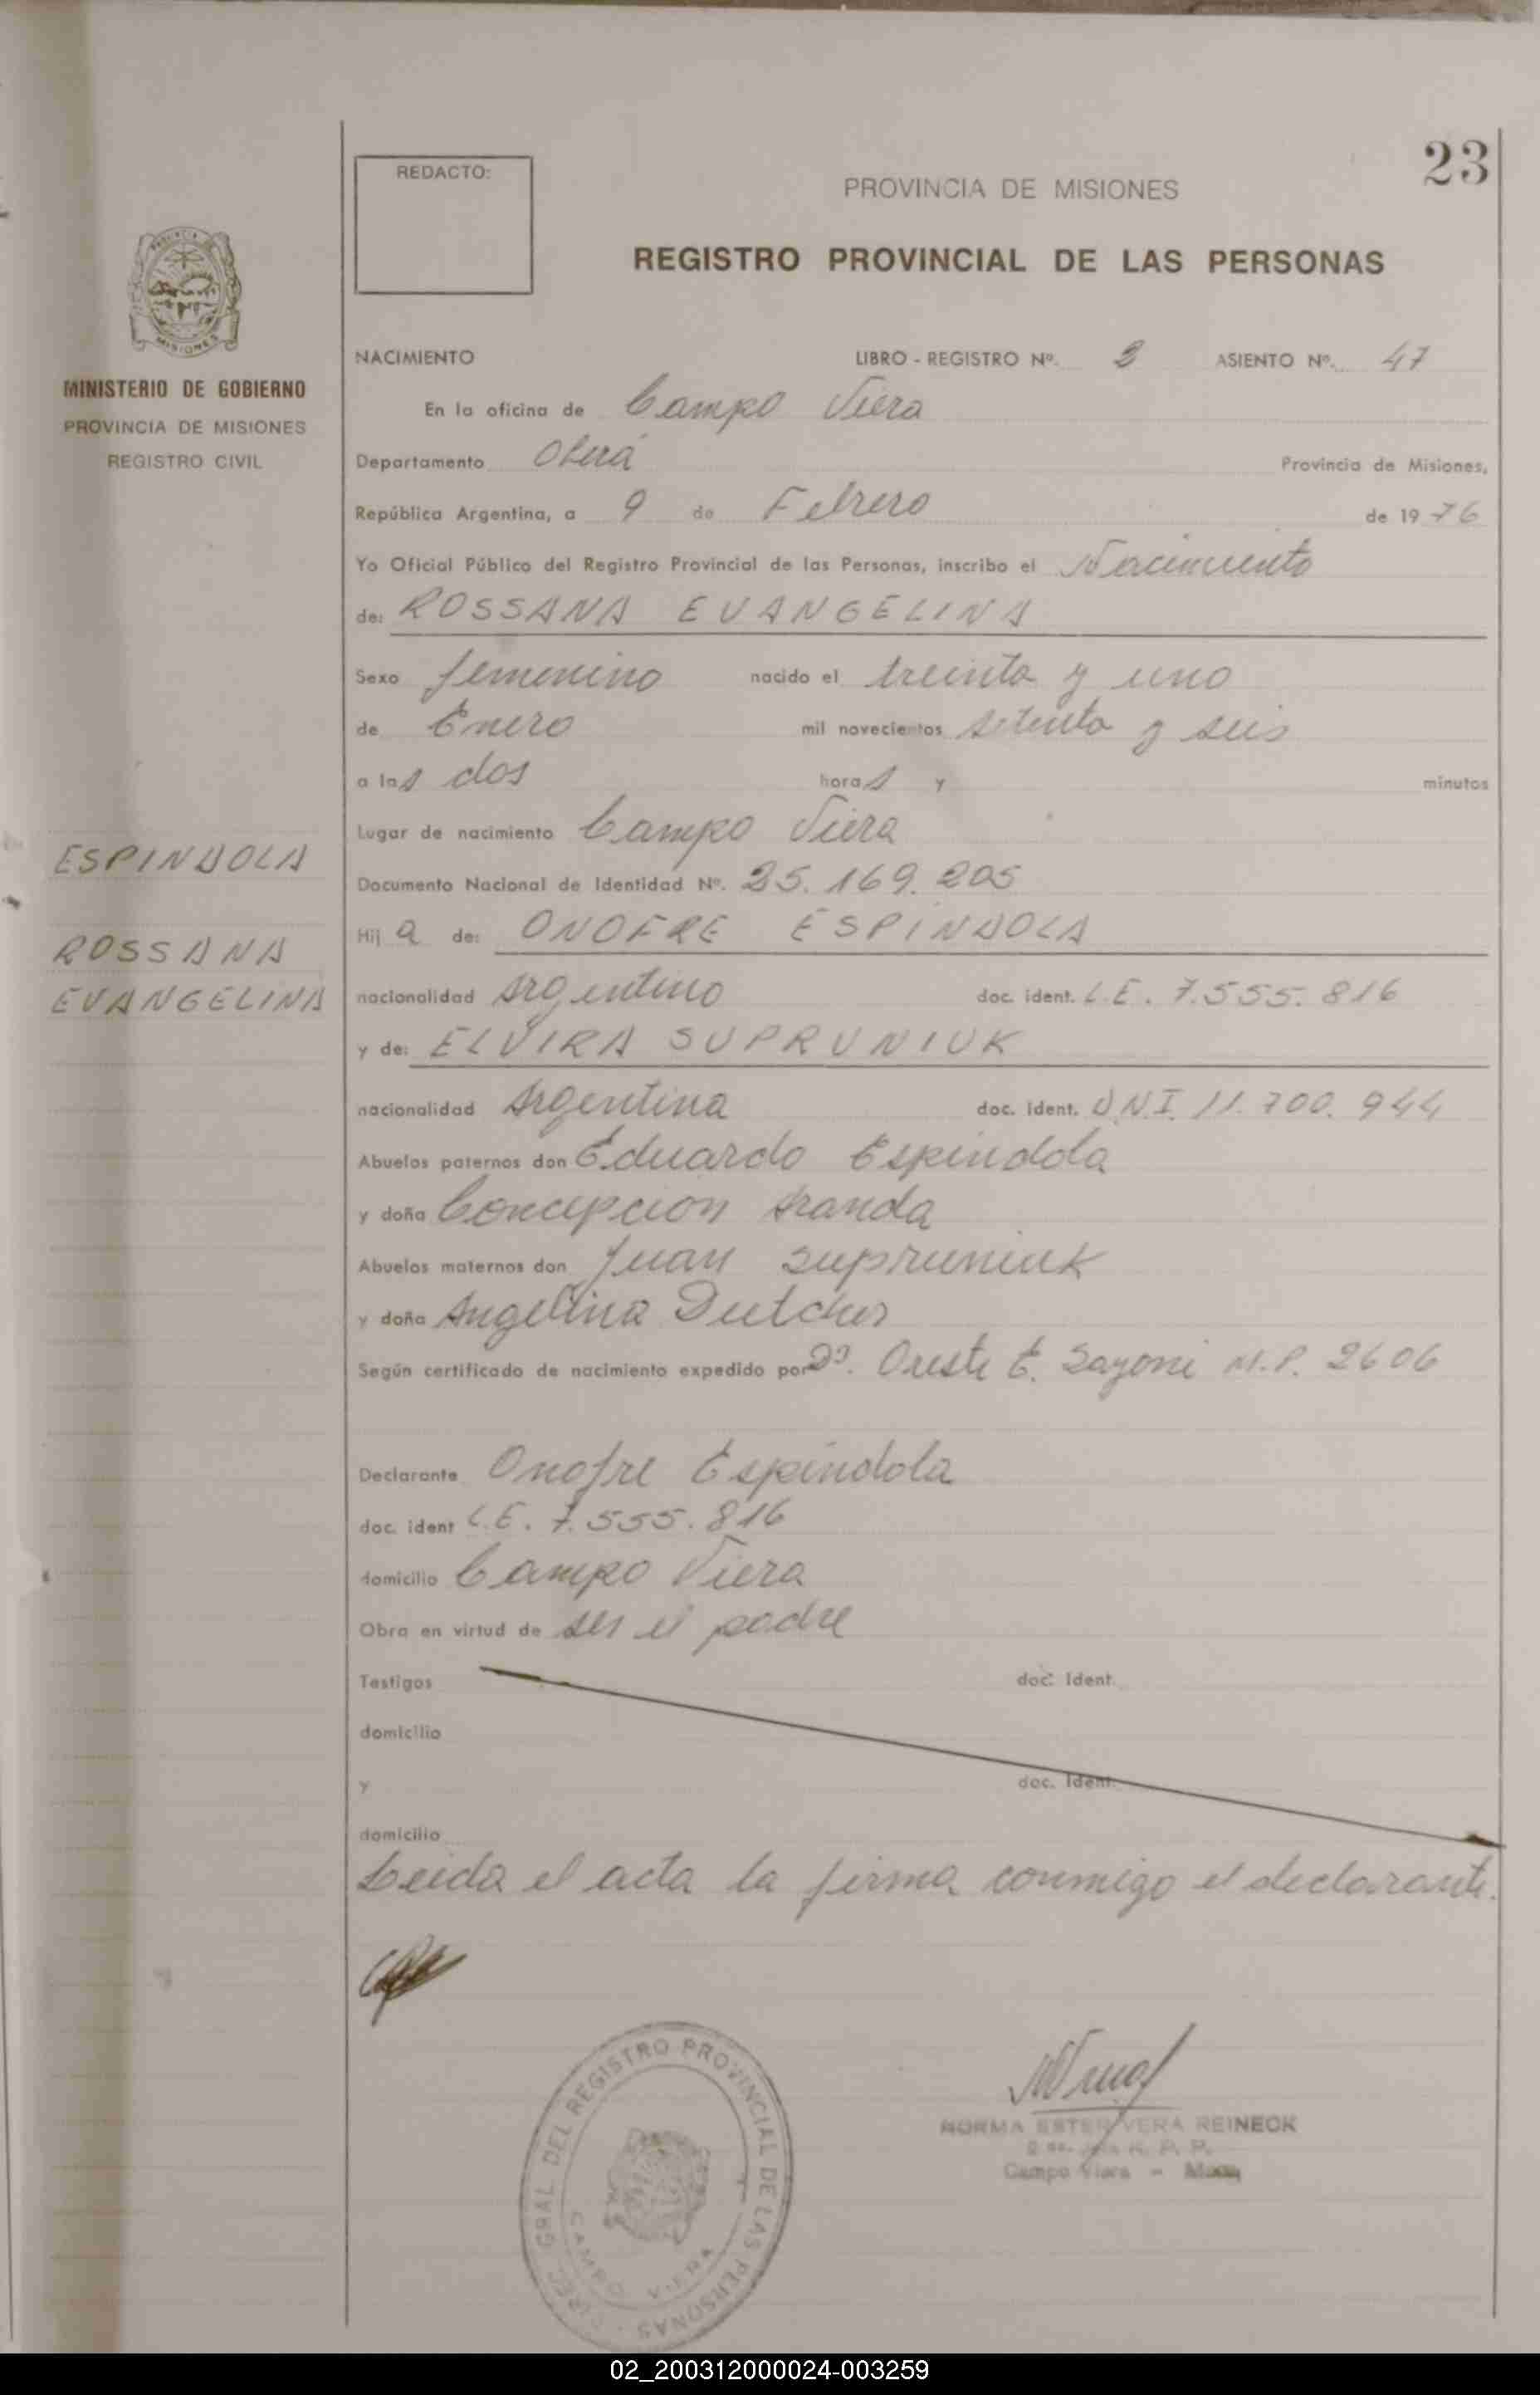 23
REDACTO:
PROVINCIA DE MISIONES
REGISTRO PROVINCIAL DE LAS PERSONAS
MISIONES
MINISTERIO DE GOBIERNO
PROVINCIA DE MISIONES
REGISTRO CIVIL
NACIMIENTO LIBRO - REGISTRO Nº. ASIENTO Nº. 47
En la oficina de Campo Viera
Departamento Oberá Provincia de Misiones,
República Argentina, a 9 de Febrero de 1976
Yo Oficial Público del Registro Provincial de las Personas, inscribo el Nacimiento
de: ROSSANA EVANGELINA
Sexo femenino nacido el treinta y uno
de Enero mil novecientos setenta y seis
a las dos horas y minutos
Lugar de nacimiento Campo Viera
ESPINDOLA
Documento Nacional de Identidad Nº. 25.169.205
Hija de: ONOFRE ESPINDOLA
ROSSANA
EVANGELINA
nacionalidad Argentino doc. ident. L.E. 7.555.816
y de: ELVIRA SUPRUNIUK
nacionalidad Argentina doc. ident. D.N.I. 11.700.944
Abuelos paternos don Eduardo Espindola
y doña Concepcion Aranda
Abuelos maternos don Juan Supruniuk
y doña Angelina
Según certificado de nacimiento expedido por Dr. Oreste E. M.P. 2606
Declarante Onofre Espindola
doc. ident L.E. 7.555.816
domicilio Campo Viera
Obra en virtud de ser el padre
Testigos doc. Ident.
domicilio
y doc. Ident.
domicilio
Leida el acta la firma conmigo el declarante.
DIREC. GRAL. DEL REGISTRO PROVINCIAL DE LAS PERSONAS
CAMPO VIERA
NORMA ESTER VERA REINECK
R. P. P.
Campo Viera -
02_200312000024-003259